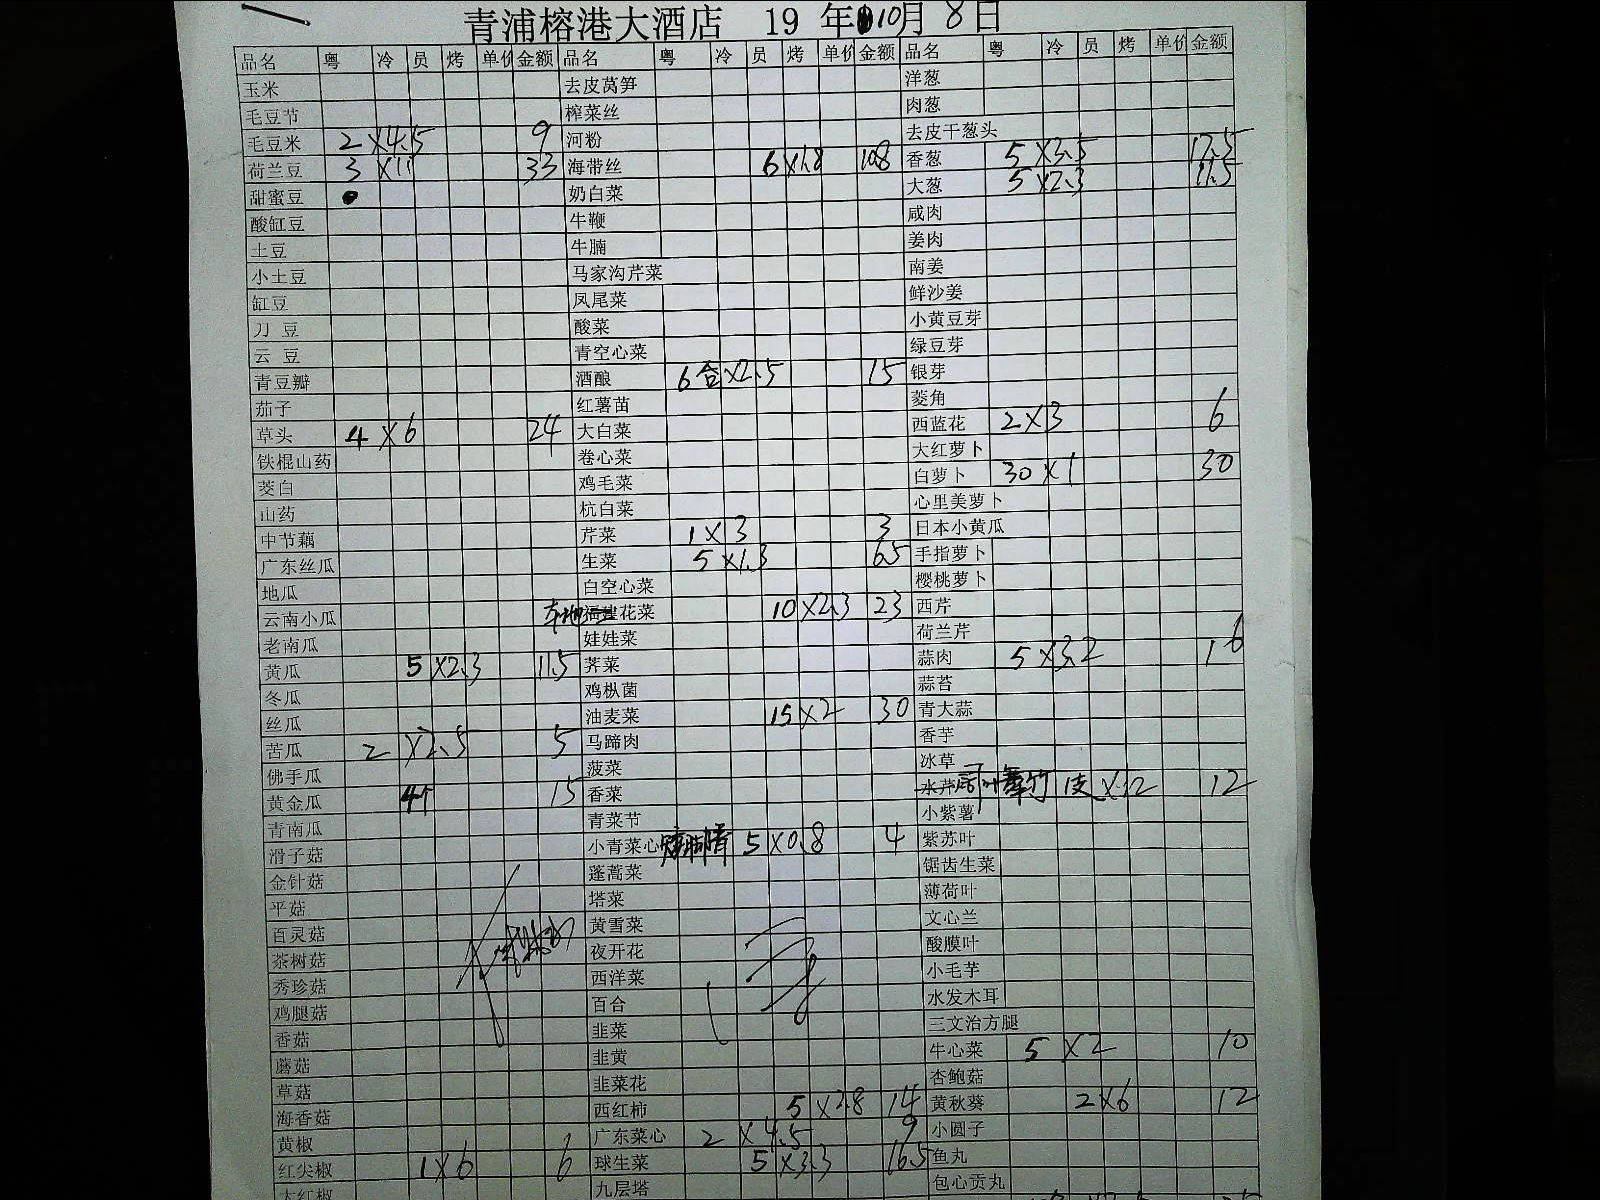 青浦榕港大酒店 19 年10月8日
品名 粤 冷 员 烤 单价 金额 品名 粤 冷 员 烤 单价 金额 品名 粤 冷 员 烤 单价 金额
玉米 去皮莴笋 洋葱
毛豆节 榨菜丝 肉葱
毛豆米 2×4.5 9 河粉 去皮干葱头
荷兰豆 3×11 33 海带丝 6×1.8 10.8 香葱 5×3.5 17.5
甜蜜豆 奶白菜 大葱 5×2.3 11.5
酸缸豆 牛鞭 咸肉
土豆 牛腩 姜肉
小土豆 马家沟芹菜 南姜
缸豆 凤尾菜 鲜沙姜
刀 豆 酸菜 小黄豆芽
云 豆 青空心菜 绿豆芽
青豆瓣 酒酿 6合×2.5 15 银芽
茄子 红薯苗 菱角
草头 4×6 24 大白菜 西蓝花 2×3 6
铁棍山药 卷心菜 大红萝卜
菱白 鸡毛菜 白萝卜 30×1 30
山药 杭白菜 心里美萝卜
中节藕 芹菜 1×3 3 日本小黄瓜
广东丝瓜 生菜 5×1.3 6.5 手指萝卜
地瓜 白空心菜 樱桃萝卜
云南小瓜 本地福建花菜 10×2.3 23 西芹
老南瓜 娃娃菜 荷兰芹
黄瓜 5×2.3 11.5 荠菜 蒜肉 5×3.2 16
冬瓜 鸡枞菌 蒜苔
丝瓜 油麦菜 15×2 30 青大蒜
苦瓜 2×2.5 5 马蹄肉 香芋
佛手瓜 菠菜 冰草
黄金瓜 4个 15 香菜 水芹 ×12 12
青南瓜 青菜节 小紫薯
滑子菇 小青菜心 5×0.8 4 紫苏叶
金针菇 蓬蒿菜 锯齿生菜
平菇 塔菜 薄荷叶
百灵菇 黄雪菜 文心兰
茶树菇 夜开花 酸膜叶
秀珍菇 西洋菜 小毛芋
鸡腿菇 百合 水发木耳
香菇 韭菜 三文治方腿
蘑菇 韭黄 牛心菜 5×2 10
草菇 韭菜花 杏鲍菇
海香菇 西红柿 5×2.8 14 黄秋葵 2×6 12
黄椒 广东菜心 2×4.5 9 小圆子
红尖椒 1×6 6 球生菜 5×3.3 16.5 鱼丸
大红椒 九层塔 包心贡丸